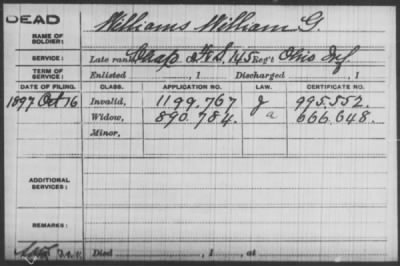 DEAD
Williams William G.
NAME OF SOLDIER:
SERVICE: Late rank, F & S, 145 Reg't Ohio Inf.
TERM OF SERVICE: Enlisted , 1 Discharged , 1
DATE OF FILING. CLASS. APPLICATION NO. LAW. CERTIFICATE NO.
1897 Oct 16 Invalid, 1199.767 g 995.552.
Widow, 890.784. a 666.648.
Minor,
ADDITIONAL SERVICES:
REMARKS:
Died , 1 , at